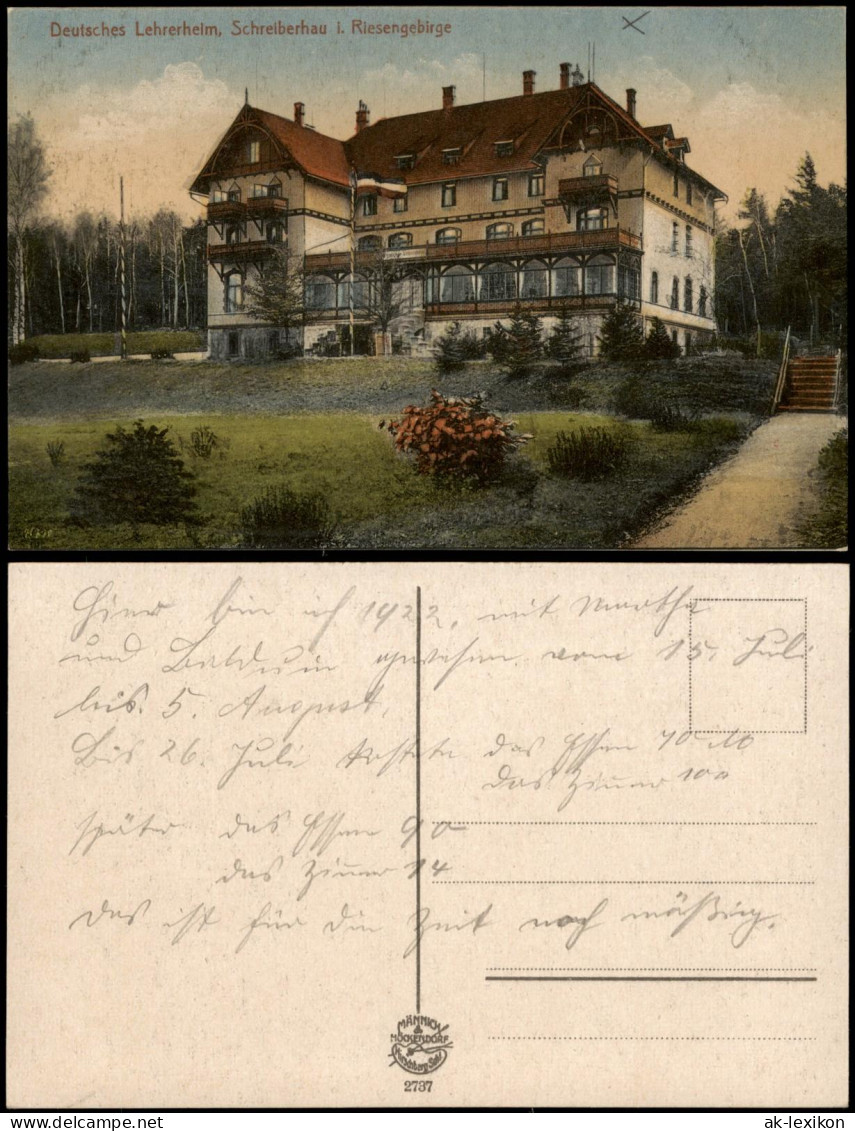 Deutsches Lehrerheim, Schreiberhau i. Riesengebirge
Hier bin ich 1922, mit Martha
und Balduin gewesen vom 15. Juli
bis 5. August.
Bis 26. Juli kostete das Essen 70 M
das Zimmer 100
später das Essen 90
das Zimmer 14
Das ist für die Zeit noch mäßig.
MÄNNICH
&
HÖCKENDORF
2737
ak-lexikon